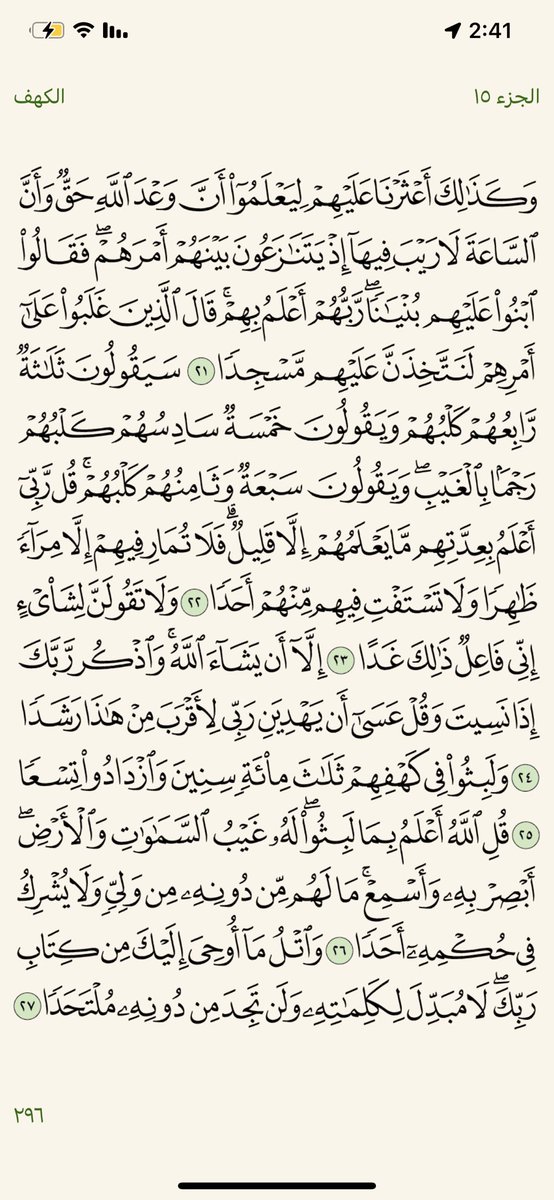 2:41
الجزء ١٥
الكهف
وَكَذَٰلِكَ أَعْثَرْنَا عَلَيْهِمْ لِيَعْلَمُوٓا۟ أَنَّ وَعْدَ ٱللَّهِ حَقٌّ وَأَنَّ
ٱلسَّاعَةَ لَا رَيْبَ فِيهَآ إِذْ يَتَنَٰزَعُونَ بَيْنَهُمْ أَمْرَهُمْ ۖ فَقَالُوا۟
ٱبْنُوا۟ عَلَيْهِم بُنْيَٰنًا ۖ رَّبُّهُمْ أَعْلَمُ بِهِمْ ۚ قَالَ ٱلَّذِينَ غَلَبُوا۟ عَلَىٰٓ
أَمْرِهِمْ لَنَتَّخِذَنَّ عَلَيْهِم مَّسْجِدًا ٢١ سَيَقُولُونَ ثَلَٰثَةٌ
رَّابِعُهُمْ كَلْبُهُمْ وَيَقُولُونَ خَمْسَةٌ سَادِسُهُمْ كَلْبُهُمْ
رَجْمًۢا بِٱلْغَيْبِ ۖ وَيَقُولُونَ سَبْعَةٌ وَثَامِنُهُمْ كَلْبُهُمْ ۚ قُل رَّبِّىٓ
أَعْلَمُ بِعِدَّتِهِم مَّا يَعْلَمُهُمْ إِلَّا قَلِيلٌ ۗ فَلَا تُمَارِ فِيهِمْ إِلَّا مِرَآءً
ظَٰهِرًا وَلَا تَسْتَفْتِ فِيهِم مِّنْهُمْ أَحَدًا ٢٢ وَلَا تَقُولَنَّ لِشَا۟ىْءٍ
إِنِّى فَاعِلٌ ذَٰلِكَ غَدًا ٢٣ إِلَّآ أَن يَشَآءَ ٱللَّهُ ۚ وَٱذْكُر رَّبَّكَ
إِذَا نَسِيتَ وَقُلْ عَسَىٰٓ أَن يَهْدِيَنِ رَبِّى لِأَقْرَبَ مِنْ هَٰذَا رَشَدًا
٢٤ وَلَبِثُوا۟ فِى كَهْفِهِمْ ثَلَٰثَ مِا۟ئَةٍ سِنِينَ وَٱزْدَادُوا۟ تِسْعًا
٢٥ قُلِ ٱللَّهُ أَعْلَمُ بِمَا لَبِثُوا۟ ۖ لَهُۥ غَيْبُ ٱلسَّمَٰوَٰتِ وَٱلْأَرْضِ ۖ
أَبْصِرْ بِهِۦ وَأَسْمِعْ ۚ مَا لَهُم مِّن دُونِهِۦ مِن وَلِىٍّ وَلَا يُشْرِكُ
فِى حُكْمِهِۦٓ أَحَدًا ٢٦ وَٱتْلُ مَآ أُوحِىَ إِلَيْكَ مِن كِتَابِ
رَبِّكَ ۖ لَا مُبَدِّلَ لِكَلِمَٰتِهِۦ وَلَن تَجِدَ مِن دُونِهِۦ مُلْتَحَدًا ٢٧
٢٩٦